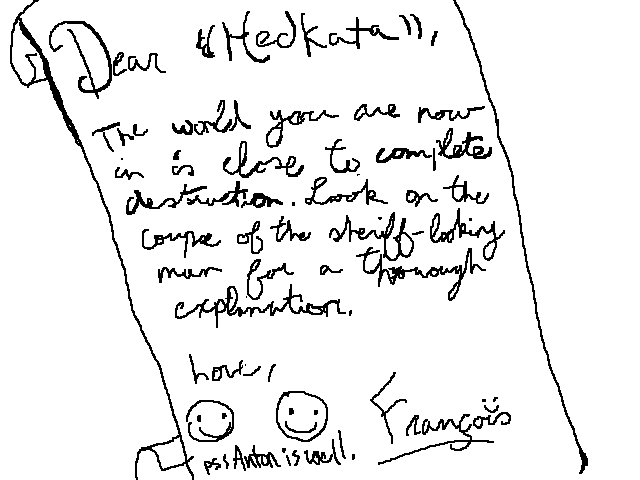 Dear "Hedkata",
The world you are now
in is close to complete
destruction. Look on the
corpse of the sheriff-looking
man for a thorough
explanation.
Love,
François
pss Anton is well.